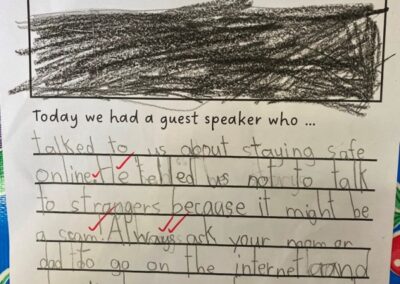 Today we had a guest speaker who ...
talked to us about staying safe
online. He telled us not to talk
to strangers because it might be
a scam! Always ask your mom or
dad to go on the internet and